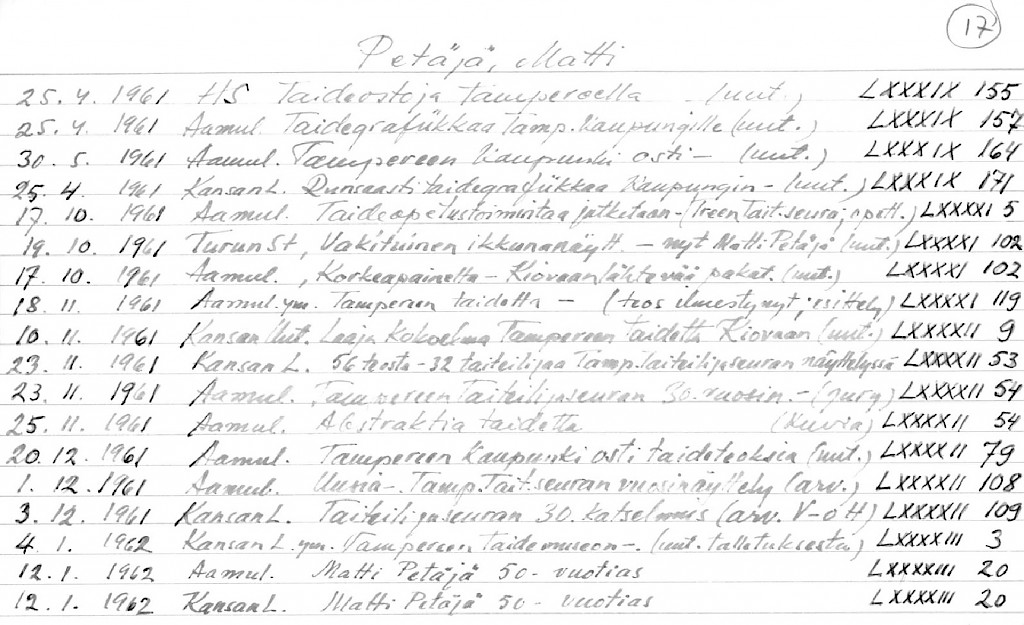 17
Petäjä, Matti
25.4. 1961 HS Taideostoja Tampereella (uut.) LXXXIX 155
25.4. 1961 Aamul. Taidegrafiikkaa Tamp. kaupungille (uut.) LXXXIX 157
30.5. 1961 Aamul. Tampereen kaupunki osti – (uut.) LXXXIX 164
25.4. 1961 Kansan L. Runsaasti taidegrafiikkaa kaupungin – (uut.) LXXXIX 171
17.10. 1961 Aamul. Taideopetustoimintaa jatketaan – (Treen Tait.seura, opett.) LXXXXI 5
19.10. 1961 Turun St, Vakituinen ikkunanäytt. – nyt Matti Petäjä (uut.) LXXXXI 102
17.10. 1961 Aamul., Korkeapainetta – Kiovaan lähtevää pakat. (uut.) LXXXXI 102
18.11. 1961 Aamul. ym. Tampereen taidetta – (teos ilmestynyt; esittely) LXXXXI 119
10.11. 1961 Kansan Uut. Laaja kokoelma Tampereen taidetta Kiovaan (uut.) LXXXXII 9
23.11. 1961 Kansan L. 56 teosta – 32 taiteilijaa Tamp. taiteilijaseuran näyttelyssä LXXXXII 53
23.11. 1961 Aamul. Tampereen Taiteilijaseuran 30. vuosin. – (jury) LXXXXII 54
25.11. 1961 Aamul. Abstraktia taidetta (kuvia) LXXXXII 54
20.12. 1961 Aamul. Tampereen kaupunki osti taideteoksia (uut.) LXXXXII 79
1.12. 1961 Aamul. Tamp. Tait.seuran vuosinäyttely (arv.) LXXXXII 108
3.12. 1961 Kansan L. Taiteilijaseuran 30. katselmus (arv. V-o H) LXXXXII 109
4.1. 1962 Kansan L. ym. Tampereen Taidemuseon –. (uut. talletuksesta) LXXXXIII 3
12.1. 1962 Aamul. Matti Petäjä 50-vuotias LXXXXIII 20
12.1. 1962 Kansan L. Matti Petäjä 50-vuotias LXXXXIII 20